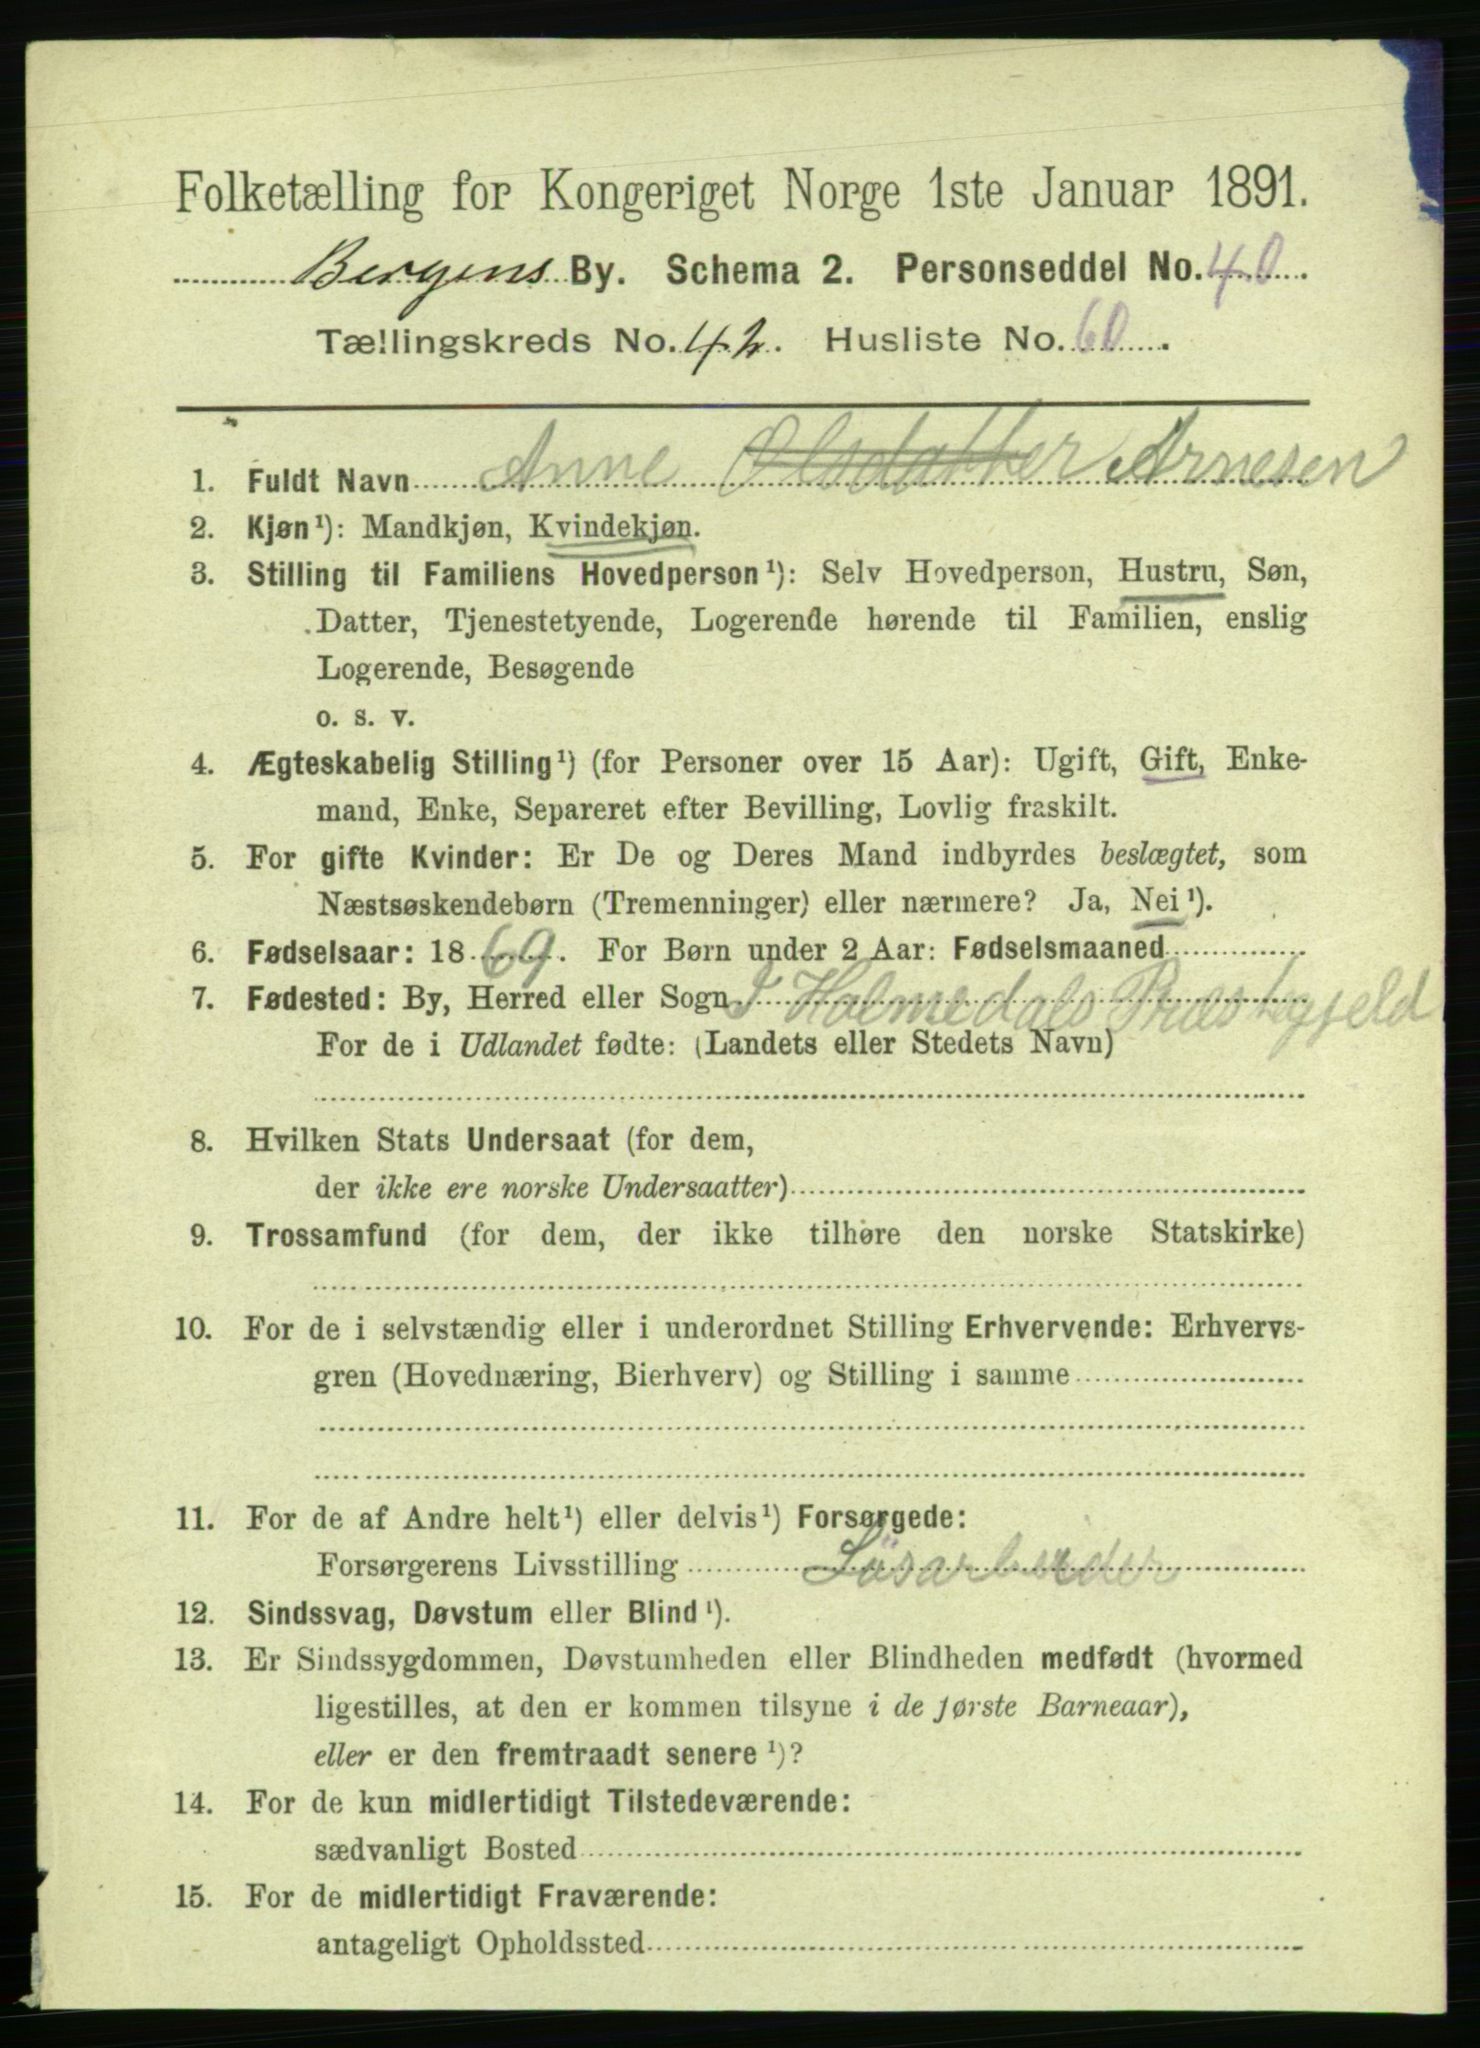 Folketælling for Kongeriget Norge 1ste Januar 1891.
Bergens By. Schema 2. Personseddel No. 40
Tællingskreds No. 42. Husliste No. 60.
1. Fuldt Navn Anne Olsdatter Arnesen
2. Kjøn¹): Mandkjøn, Kvindekjøn.
3. Stilling til Familiens Hovedperson¹): Selv Hovedperson, Hustru, Søn,
Datter, Tjenestetyende, Logerende hørende til Familien, enslig
Logerende, Besøgende
o. s. v.
4. Ægteskabelig Stilling¹) (for Personer over 15 Aar): Ugift, Gift, Enke-
mand, Enke, Separeret efter Bevilling, Lovlig fraskilt.
5. For gifte Kvinder: Er De og Deres Mand indbyrdes beslægtet, som
Næstsøskendebørn (Tremenninger) eller nærmere? Ja, Nei¹).
6. Fødselsaar: 1869. For Børn under 2 Aar: Fødselsmaaned
7. Fødested: By, Herred eller Sogn I Holmedals Præstegjeld
For de i Udlandet fødte: (Landets eller Stedets Navn)
8. Hvilken Stats Undersaat (for dem,
der ikke ere norske Undersaatter)
9. Trossamfund (for dem, der ikke tilhøre den norske Statskirke)
10. For de i selvstændig eller i underordnet Stilling Erhvervende: Erhvervs-
gren (Hovednæring, Bierhverv) og Stilling i samme
11. For de af Andre helt¹) eller delvis¹) Forsørgede:
Forsørgerens Livsstilling Løsarbeider
12. Sindssvag, Døvstum eller Blind¹).
13. Er Sindssygdommen, Døvstumheden eller Blindheden medfødt (hvormed
ligestilles, at den er kommen tilsyne i de første Barneaar),
eller er den fremtraadt senere¹)?
14. For de kun midlertidigt Tilstedeværende:
sædvanligt Bosted
15. For de midlertidigt Fraværende:
antageligt Opholdssted